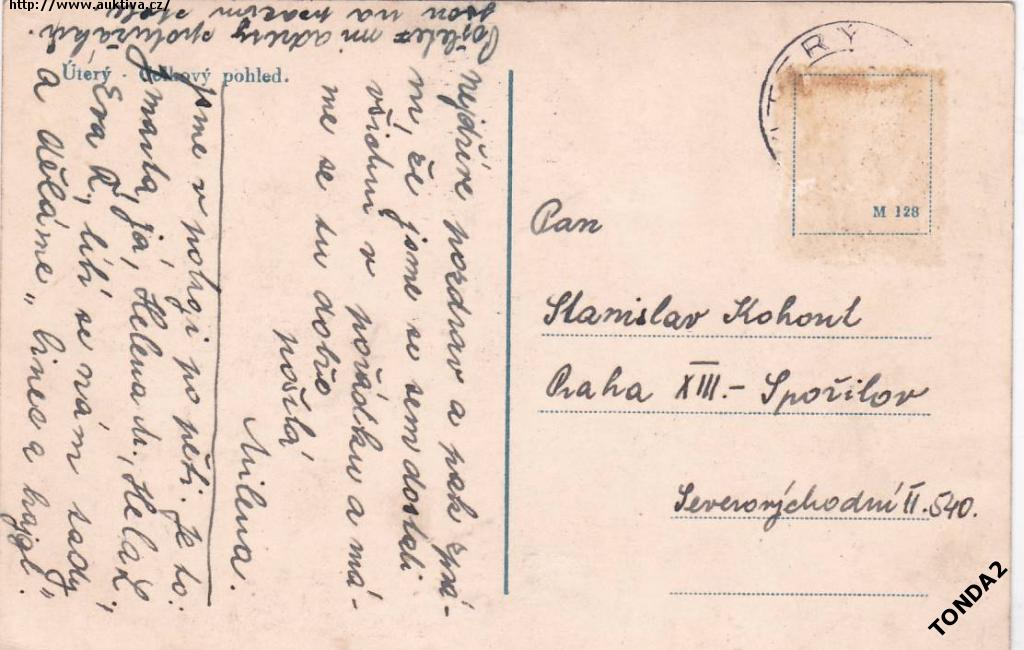 http://www.auktiva.cz/
Úterý - Celkový pohled.
Nejdříve pozdrav a pak zprá-
vu, že jsme se sem dostali
všichni v pořádku a má-
me se tu dobře
posílá
Milena.
Jsme v pokoji po pěti. Je to:
Marta, já, Helena
Eva R., líbí se nám tady
a děláme „
Pošlete mi adresy spolužáků.
jsou na mazím stole
ÚTERÝ
M 128
Pan
Stanislav Kohout
Praha XIII. - Spořilov
Severovýchodní II. 540.
TONDA2